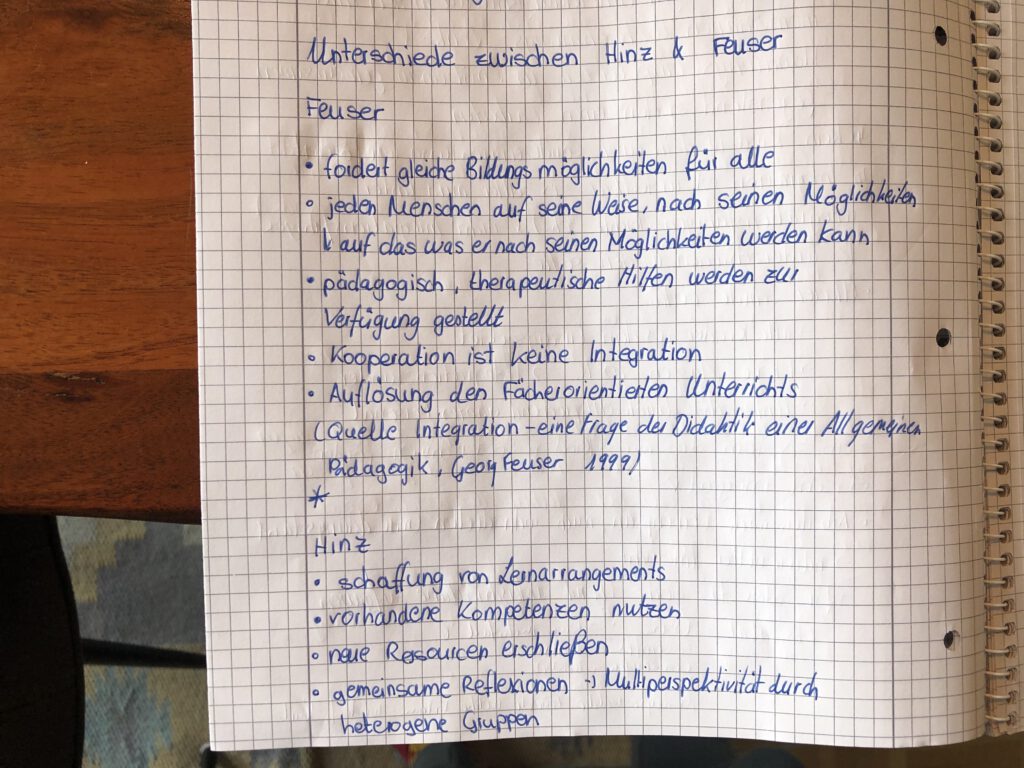 Unterschiede zwischen Hinz & Feuser
Feuser
• fordert gleiche Bildungsmöglichkeiten für alle
• jeden Menschen auf seine Weise, nach seinen Möglichkeiten
↳ auf das was er nach seinen Möglichkeiten werden kann
• pädagogisch, therapeutische Hilfen werden zur
Verfügung gestellt
• Kooperation ist keine Integration
• Auflösung den Fächerorientierten Unterrichts
(Quelle Integration - eine Frage der Didaktik einer Allgemeinen
Pädagogik, Georg Feuser 1999)
*
Hinz
• schaffung von Lernarrangements
• vorhandene Kompetenzen nutzen
• neue Resourcen erschließen
• gemeinsame Reflexionen → Multiperspektivität durch
heterogene Gruppen